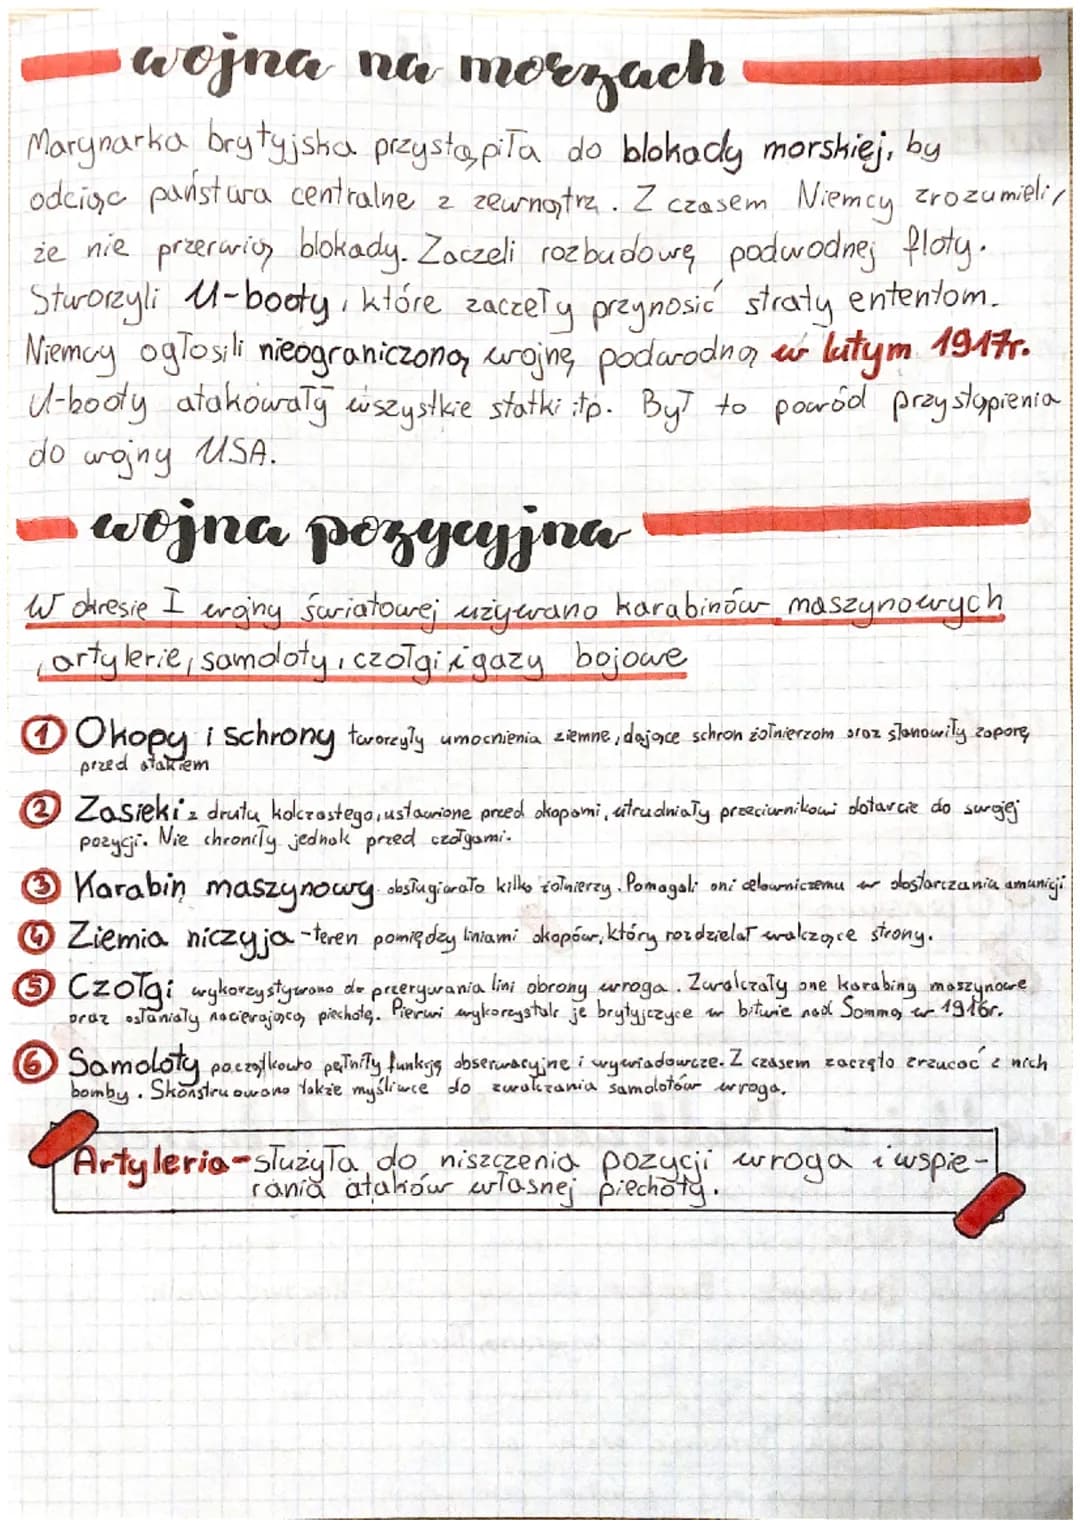 wojna na morzach
Marynarka brytyjska przystąpiła do blokady morskiej, by
odciąć państwa centralne z zewnątrz. Z czasem Niemcy zrozumieli,
że nie przerwią blokady. Zaczeli rozbudowę podwodnej floty.
Stworzyli U-booty, które zaczeły przynosić straty ententom.
Niemcy ogłosili nieograniczoną wojnę podwodną w lutym 1917r.
U-booty atakowały wszystkie statki itp. Był to powód przystąpienia
do wojny USA.
wojna pozycyjna
W okresie I wojny światowej używano karabinów maszynowych
, artylerie, samoloty, czołgi i gazy bojowe
1 Okopy i schrony tworzyły umocnienia ziemne, dające schron żołnierzom oraz stanowiły zaporę
przed atakiem
2 Zasieki z drutu kolczastego, ustawione przed okopami, utrudniały przeciwnikowi dotarcie do swojej
pozycji. Nie chroniły jednak przed czołgami.
3 Karabin maszynowy obsługiwało kilko żołnierzy. Pomagali oni celowniczemu w dostarczania amunicji
4 Ziemia niczyja - teren pomiędzy liniami okopów, który rozdzielał walczące strony.
5 Czołgi wykorzystywano do przerywania lini obrony wroga. Zwalczały one karabiny maszynowe
oraz osłaniały nacierającą piechotę. Pierwsi wykorzystale je brytyjczyce w bitwie nad Sommą w 1916r.
6 Samoloty początkowo pełniły funkcję obserwacyjne i wywiadowcze. Z czasem zaczęto zrzucać z nich
bomby. Skonstruowano także myśliwce do zwalczania samolotów wroga.
Artyleria - służyła do niszczenia pozycji wroga i wspie-
rania ataków własnej piechoty.